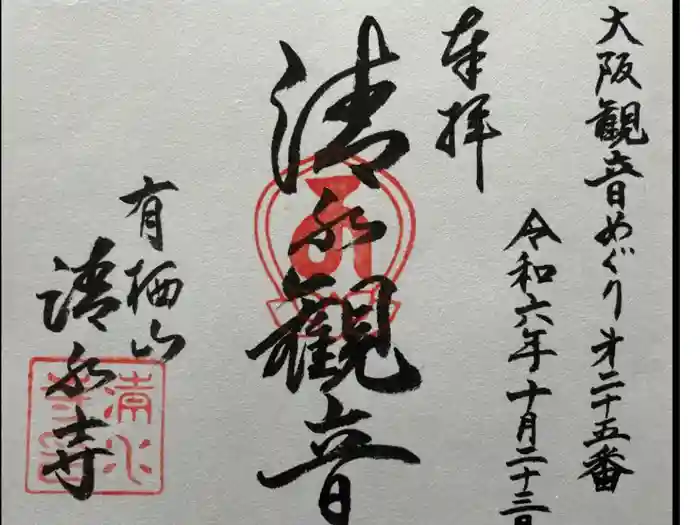 大阪観音めぐり第二十五番
令和六年十月二十三日
奉拝
清水観音
有栖山
清水寺